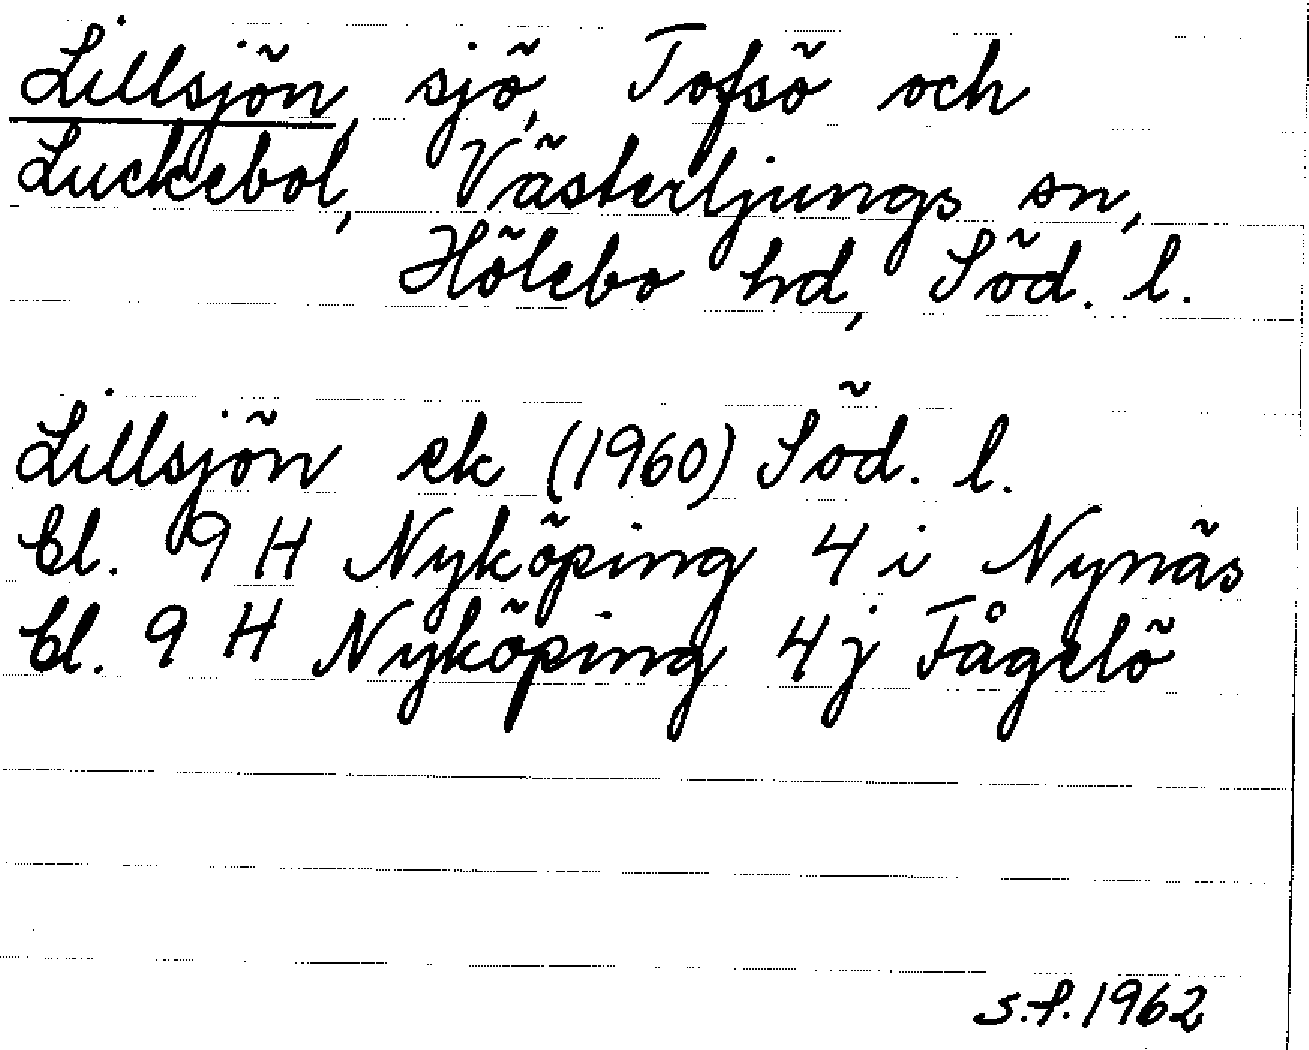 Lillsjön, sjö, Tofsö och
Luckebol, Västerljungs sn,
Hölebo hd, Söd. l.
Lillsjön ek (1960) Söd. l.
bl. 9 H Nyköping 4 i Nynäs
bl. 9 H Nyköping 4 j Fågelö
s.f. 1962